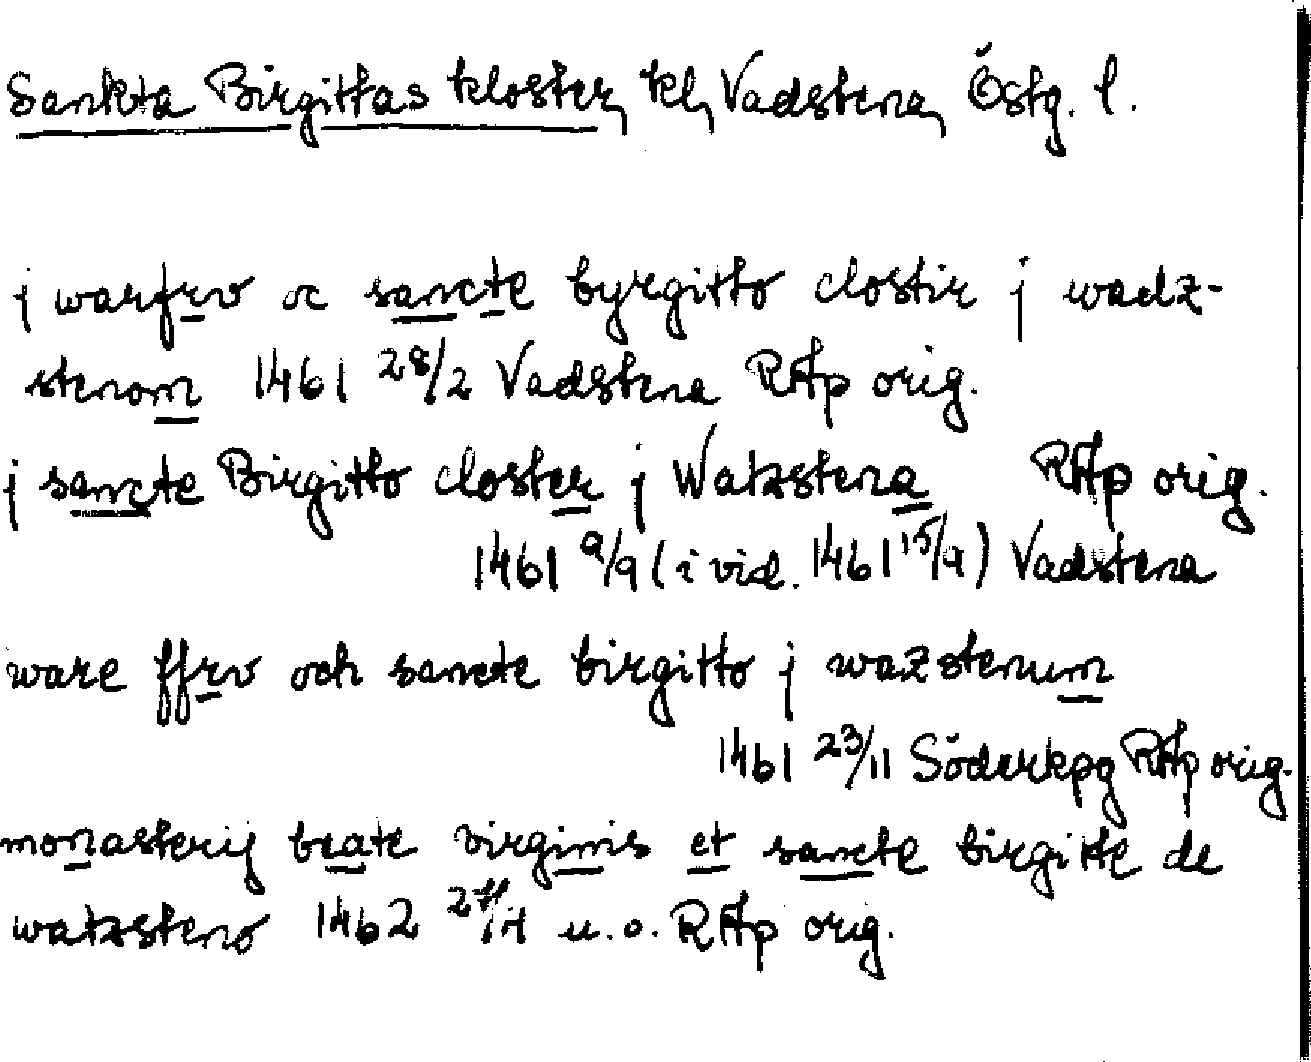 Sankta Birgittas kloster, kl, Vadstena, Östg. l.
j warfrv oc sancte byrgitto clostir j wadz-
stenom 1461 28/2 Vadstena RAp orig.
j sancte Birgitto closter j Watzstena RAp orig.
1461 9/9 (i vid. 1461 15/9) Vadstena
ware ffrv och sancte birgitto j wazstenum
1461 23/11 Söderkpg RAp orig.
monasterij beate virginis et sancte birgitte de
watzsteno 1462 u.o. RAp orig.